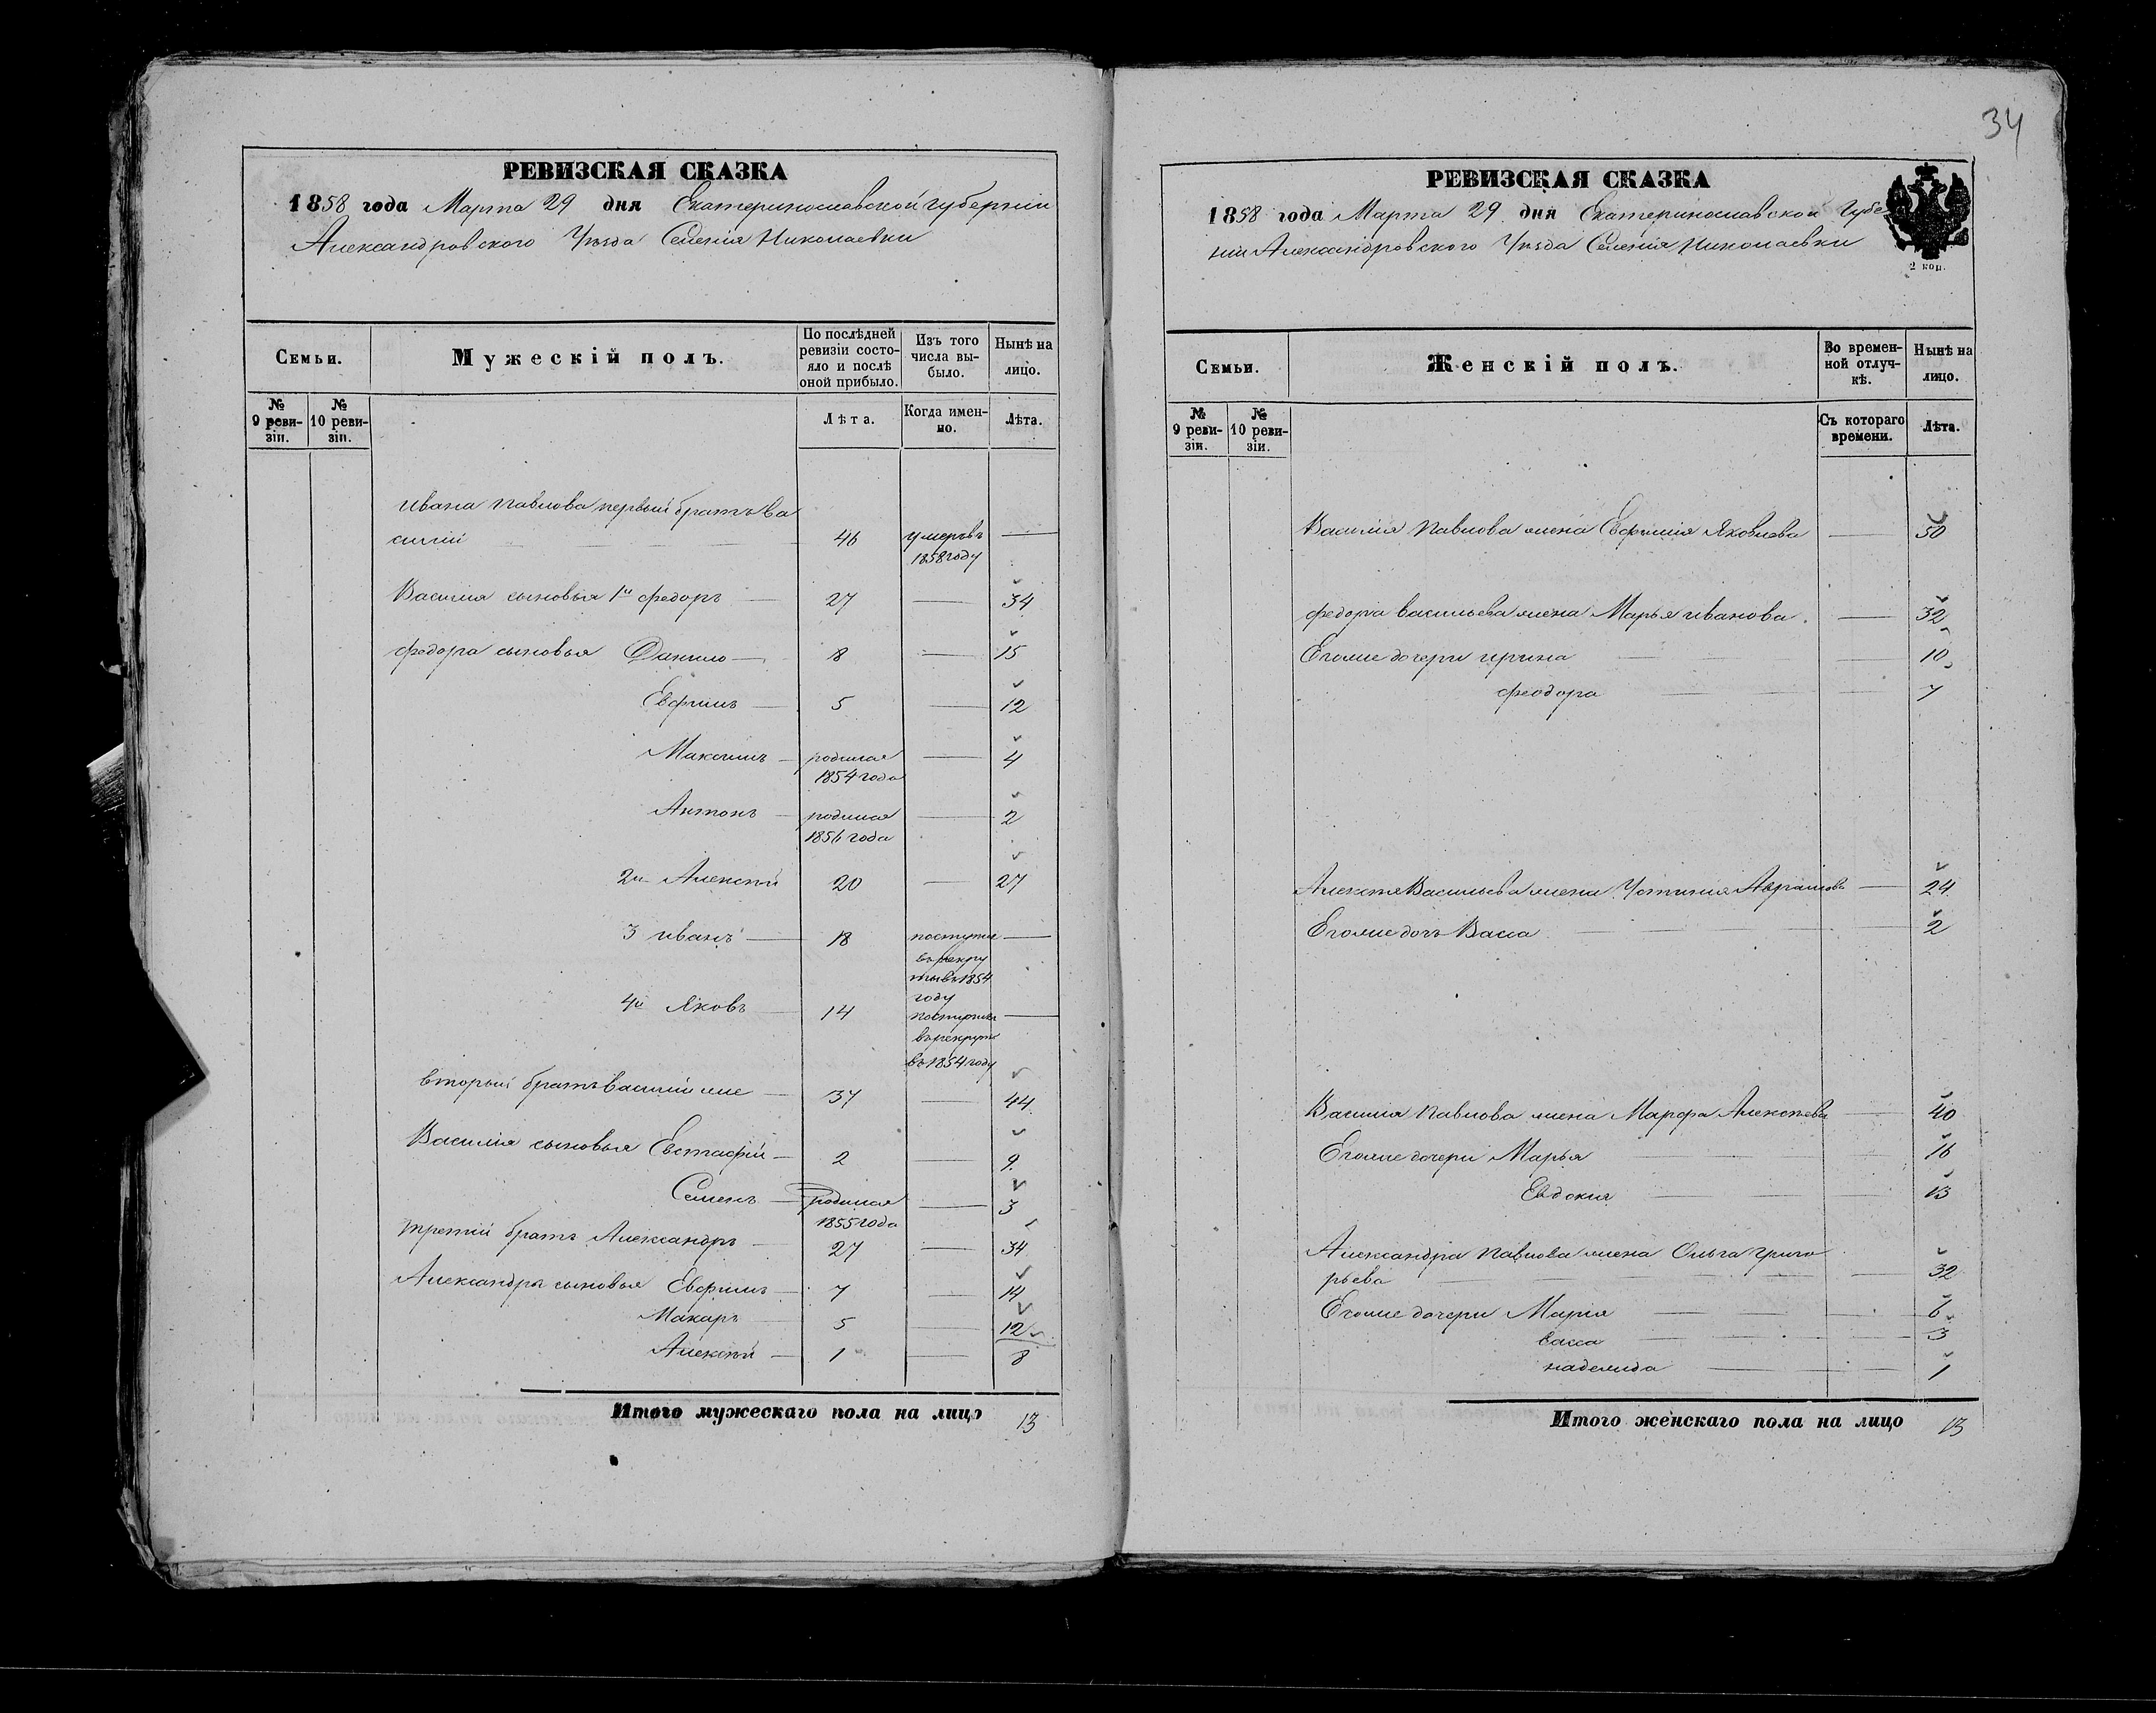 РЕВИЗСКАЯ СКАЗКА
1858 года Марта 29 дня Екатеринославской губерніи
Александровского Уѣзда Селенія Николаевки
Семьи.
Мужескій полъ.
По послѣдней ревизіи состо-
яло и послѣ оной прибыло.
Изъ того числа вы-
было.
Нынѣ на лицо.
№ 9 реви-
зіи.
№ 10 реви-
зіи.
Лѣта.
Когда имен-
но.
Лѣта.
Ивана Павлова первый братъ Ва
силій 46 умеръ въ —
1858 году
Василія сыновья 1й Федоръ 27 — 34
Федора сыновья Данило 8 — 15
Евфимъ 5 — 12
Максимъ родился — 4
1854 года
Антонъ родился — 2
1856 года
2й Алексѣй 20 — 27
3 Иванъ 18 поступил —
въ рекру
ты въ 1854
году
4й Яковъ 14 поступил —
въ рекруты
въ 1854 году
второй братъ Василій же 37 — 44
Василія сыновья Евстафій 2 — 9
Семенъ родился — 3
1855 года
третій братъ Александръ 27 — 34
Александра сыновья Евфимъ 7 — 14
Макаръ 5 — 12
Алексѣй 1 — 8
Итого мужескаго пола на лицо 13
34
РЕВИЗСКАЯ СКАЗКА
2 коп.
1858 года Марта 29 дня Екатеринославской Губе
ніи Александровского Уѣзда Селенія Николаевки
Семьи.
Женскій полъ.
Во времен-
ной отлуч-
кѣ.
Нынѣ на лицо.
№ 9 реви-
зіи.
№ 10 реви-
зіи.
Съ котораго времени.
Лѣта.
Василія Павлова жена Евфимія Яковлева — 50
Федора Васильева жена Марья Иванова — 32
Егоже дочери Ирина 10
Феодора 7
Алексѣя Васильева жена Устинія Аврамова — 24
Егоже дочь Васса 2
Василія Павлова жена Марфа Алексѣева 40
Егоже дочери Марья 16
Евдокия 13
Александра Павлова жена Ольга Григо
рьева — 32
Егоже дочери Марія 6
Васса 3
Надежда 1
Итого женскаго пола на лицо 13